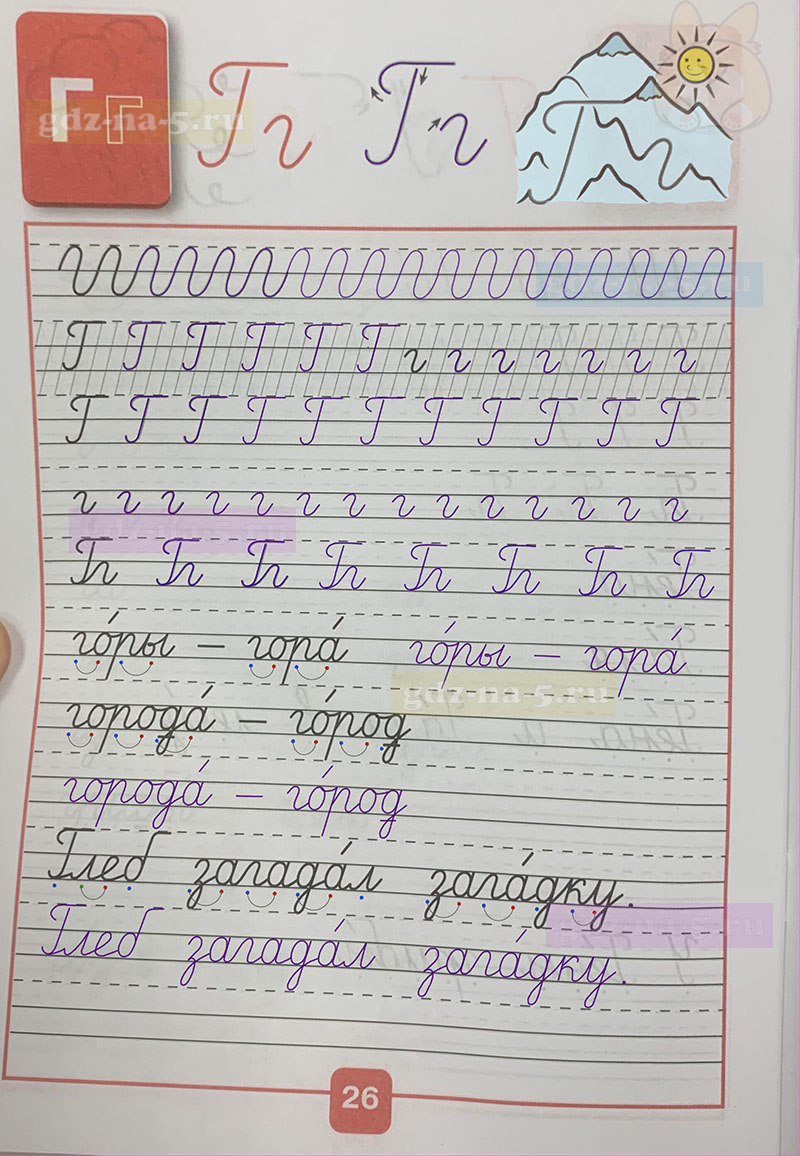 Гг Гг Гг Гг
gdz-na-5.ru
Г Г Г Г Г Г г г г г г г г
Г Г Г Г Г Г Г Г Г Г Г
г г г г г г г г г г г г г г
Гг Гг Гг Гг Гг Гг Гг Гг
го́ры – гора́ го́ры – гора́
gdz-na-5.ru
города́ – го́род
города́ – го́род
Глеб загада́л зага́дку.
Глеб загада́л зага́дку.
26